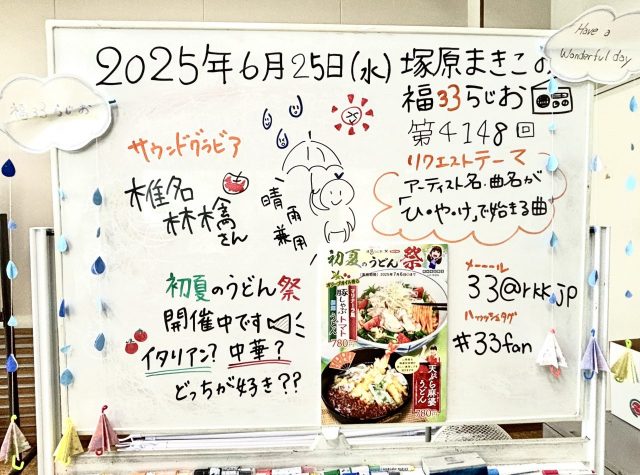 2025年6月25日(水) 塚原まきこの
福33らじお
第4148回
Have a
Wonderful day
福33らじお
サウンドグラビア
椎名
林檎
さん
晴雨
兼用
リクエストテーマ
アーティスト名・曲名が
「ひ・や・け」で始まる曲
初夏のうどん祭
開催中です
イタリアン? 中華?
どっちが好き??
初夏のうどん祭
豚しゃぶトマト
780円
天ぷら麻婆
うどん
780円
メーール
33@rkk.jp
ハッシュタグ
#33fan